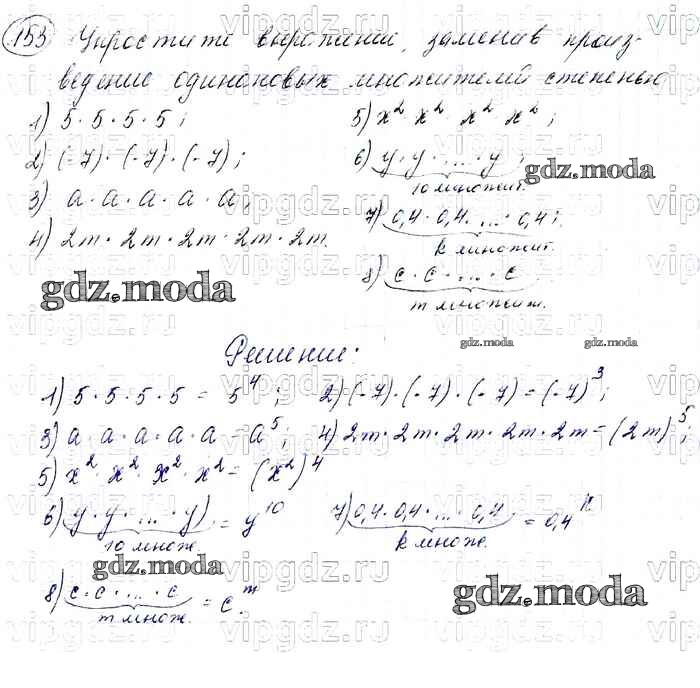 153 Упростите выражение, заменив произ-
ведение одинаковых множителей степенью
1) 5·5·5·5;
2) (-7)·(-7)·(-7);
3) a·a·a·a·a;
4) 2m·2m·2m·2m·2m.
5) x²·x²·x²·x²;
6) y·y·...·y;
10 множит.
7) 0,4·0,4·...·0,4;
k множит.
8) c·c·...·c.
m множит.
gdz.moda
gdz.moda
gdz.moda
gdz.moda
Решение:
1) 5·5·5·5 = 5⁴; 2) (-7)·(-7)·(-7) = (-7)³;
3) a·a·a·a·a = a⁵; 4) 2m·2m·2m·2m·2m = (2m)⁵;
5) x²·x²·x²·x² = (x²)⁴
6) y·y·...·y = y¹⁰ 7) 0,4·0,4·...·0,4 = 0,4ᵏ
10 множ. k множ.
8) c·c·...·c = cᵐ.
m множ.
gdz.moda
gdz.moda
vipgdz.ru